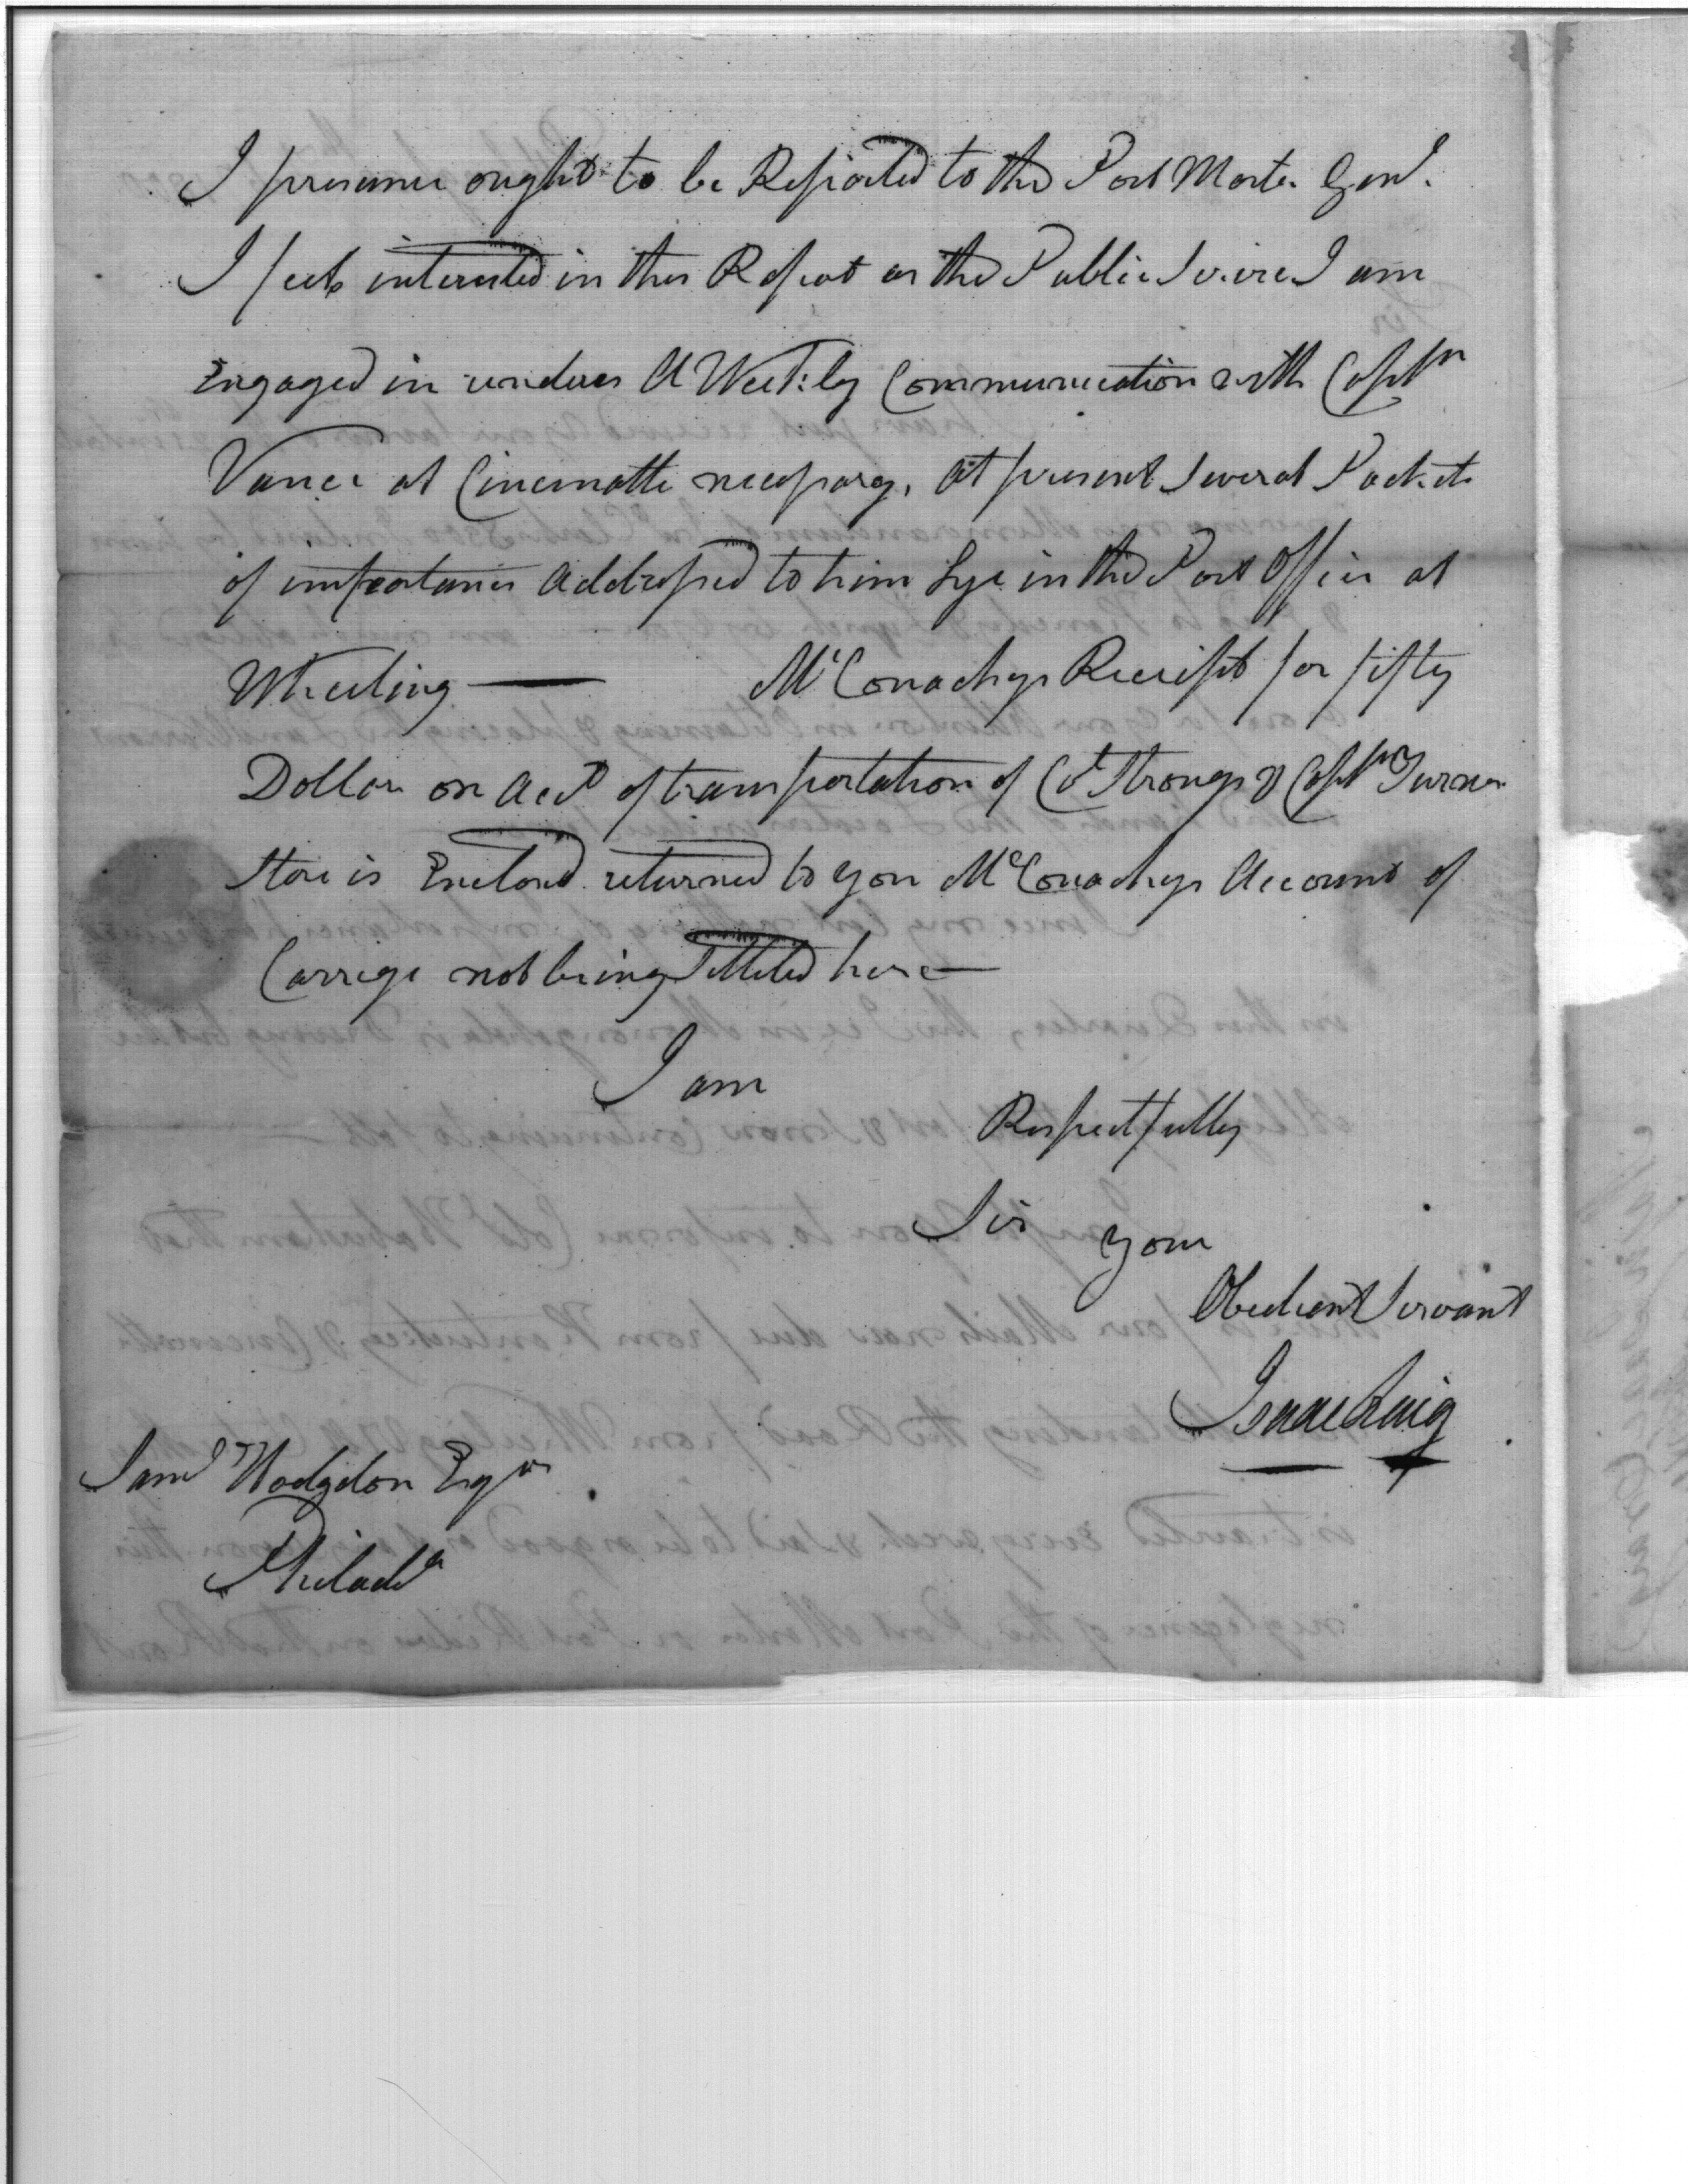 I presume ought to be Reported to the Post Master Genl.
I feel interested in this Report as the Public Service I am
Engaged in renders A Weekly Communication with Captn
Vance at Cincinatti necessary, At present Several Packets
of importance Addressed to him Lye in the Post Office at
Wheeling — McConachys Receipt for fifty
Dollars on Acct of transportation of Cot Strongs & Captn Turner
Store is Enclosed returned to you McConachys Account of
Carrige not being Settled here —
I am
Respectfully
Sir
your
Obedient Servant
Isaac Craig
Saml Hodgdon Esqr
Philada